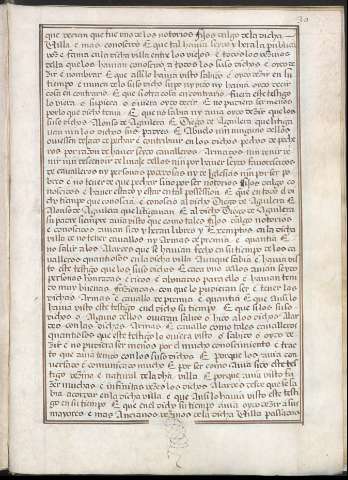 30
que decian que fue uno de los notorios hijos dalgo de la dicha
Villa e mas conoscido E que tal havia seydo y hera la publica
voz e fama en la dicha villa entre los viejos e todos los vezinos
della que los havian conoscido a todos los suso dichos e oydo de
zir e nombrar E que assi lo havia visto sabido e oydo dezir en su
tiempo e nunca de lo suso dicho supo ny vido ny havia oydo decir
cosa en contrario E que si otra cosa en contrario fuera este testigo
lo viera o supiera o oviera oydo decir E no pudiera ser menos
por lo que dicho tenia E que no sabia ny avia oydo dezir que los
suso dichos Alonso de Aguilera E Diego de Aguilera que litiga
van ni los dichos sus padres E Abuelo ni ninguno dellos
ouiessen dejado de pechar e contribuir en los dichos pechos de peche
ros por razon de haver seydo cavalleros Armados ni
ni por haver seydo favorescidos
de cavalleros ny personas poderosas ny de Iglesias ni por ser po
bres e no tener de que pechar sino por ser notorios hijos dalgo co
noscidos e haver estado y estar en tal possession E que en todo el di
cho tiempo que conoscia e conoscio al dicho Diego de Aguilera E
Alonso de Aguilera que litiguavan E al dicho Diego de Aguilera
su padre siempre avia visto que como tales hijos dalgo notorios
e conoscidos avian sido y heran libres y Exemptos en la dicha
villa de no tener cavallos ny Armas de premia e quantia E
no salir a los Alardes que se havian fecho en su tiempo de los ca
valleros quantiosos en la dicha villa Aunque sabia e havia vis
to este testigo que los suso dichos E cada uno dellos avian seydo
personas honrradas e ricos e abonados para ello e havian teni
do muy buenas haziendas con que lo pudieran ser e tener los
dichos Armas e cavallo de premia e quantia E que Ansi lo
havia visto este testigo en el dicho su tiempo E que si los suso
dichos o Alguno dellos ouieran salido o hecho los dichos Alar
des con los dichos Armas E cavallo como tales cavalleros
quantiosos que este testigo lo oviera visto o sabido o oydo de
zir e no pudiera ser menos por el mucho conoscimiento e tra
to que avia tenido con los suso dichos E porque los avia con
versado e comunicado mucho E por ser como avia sido este tes
tigo vezino e natural de la dha villa E porque avia visto fa
zer muchas e infinitas vezes los dichos Alardes desde que se sa
bia acordar en la dicha villa e que Ansi lo havia visto este testi
go en su tiempo E que en el dicho su tiempo avia oydo dezir a sus
mayores e mas Ancianos vezinos de la dicha Villa passados